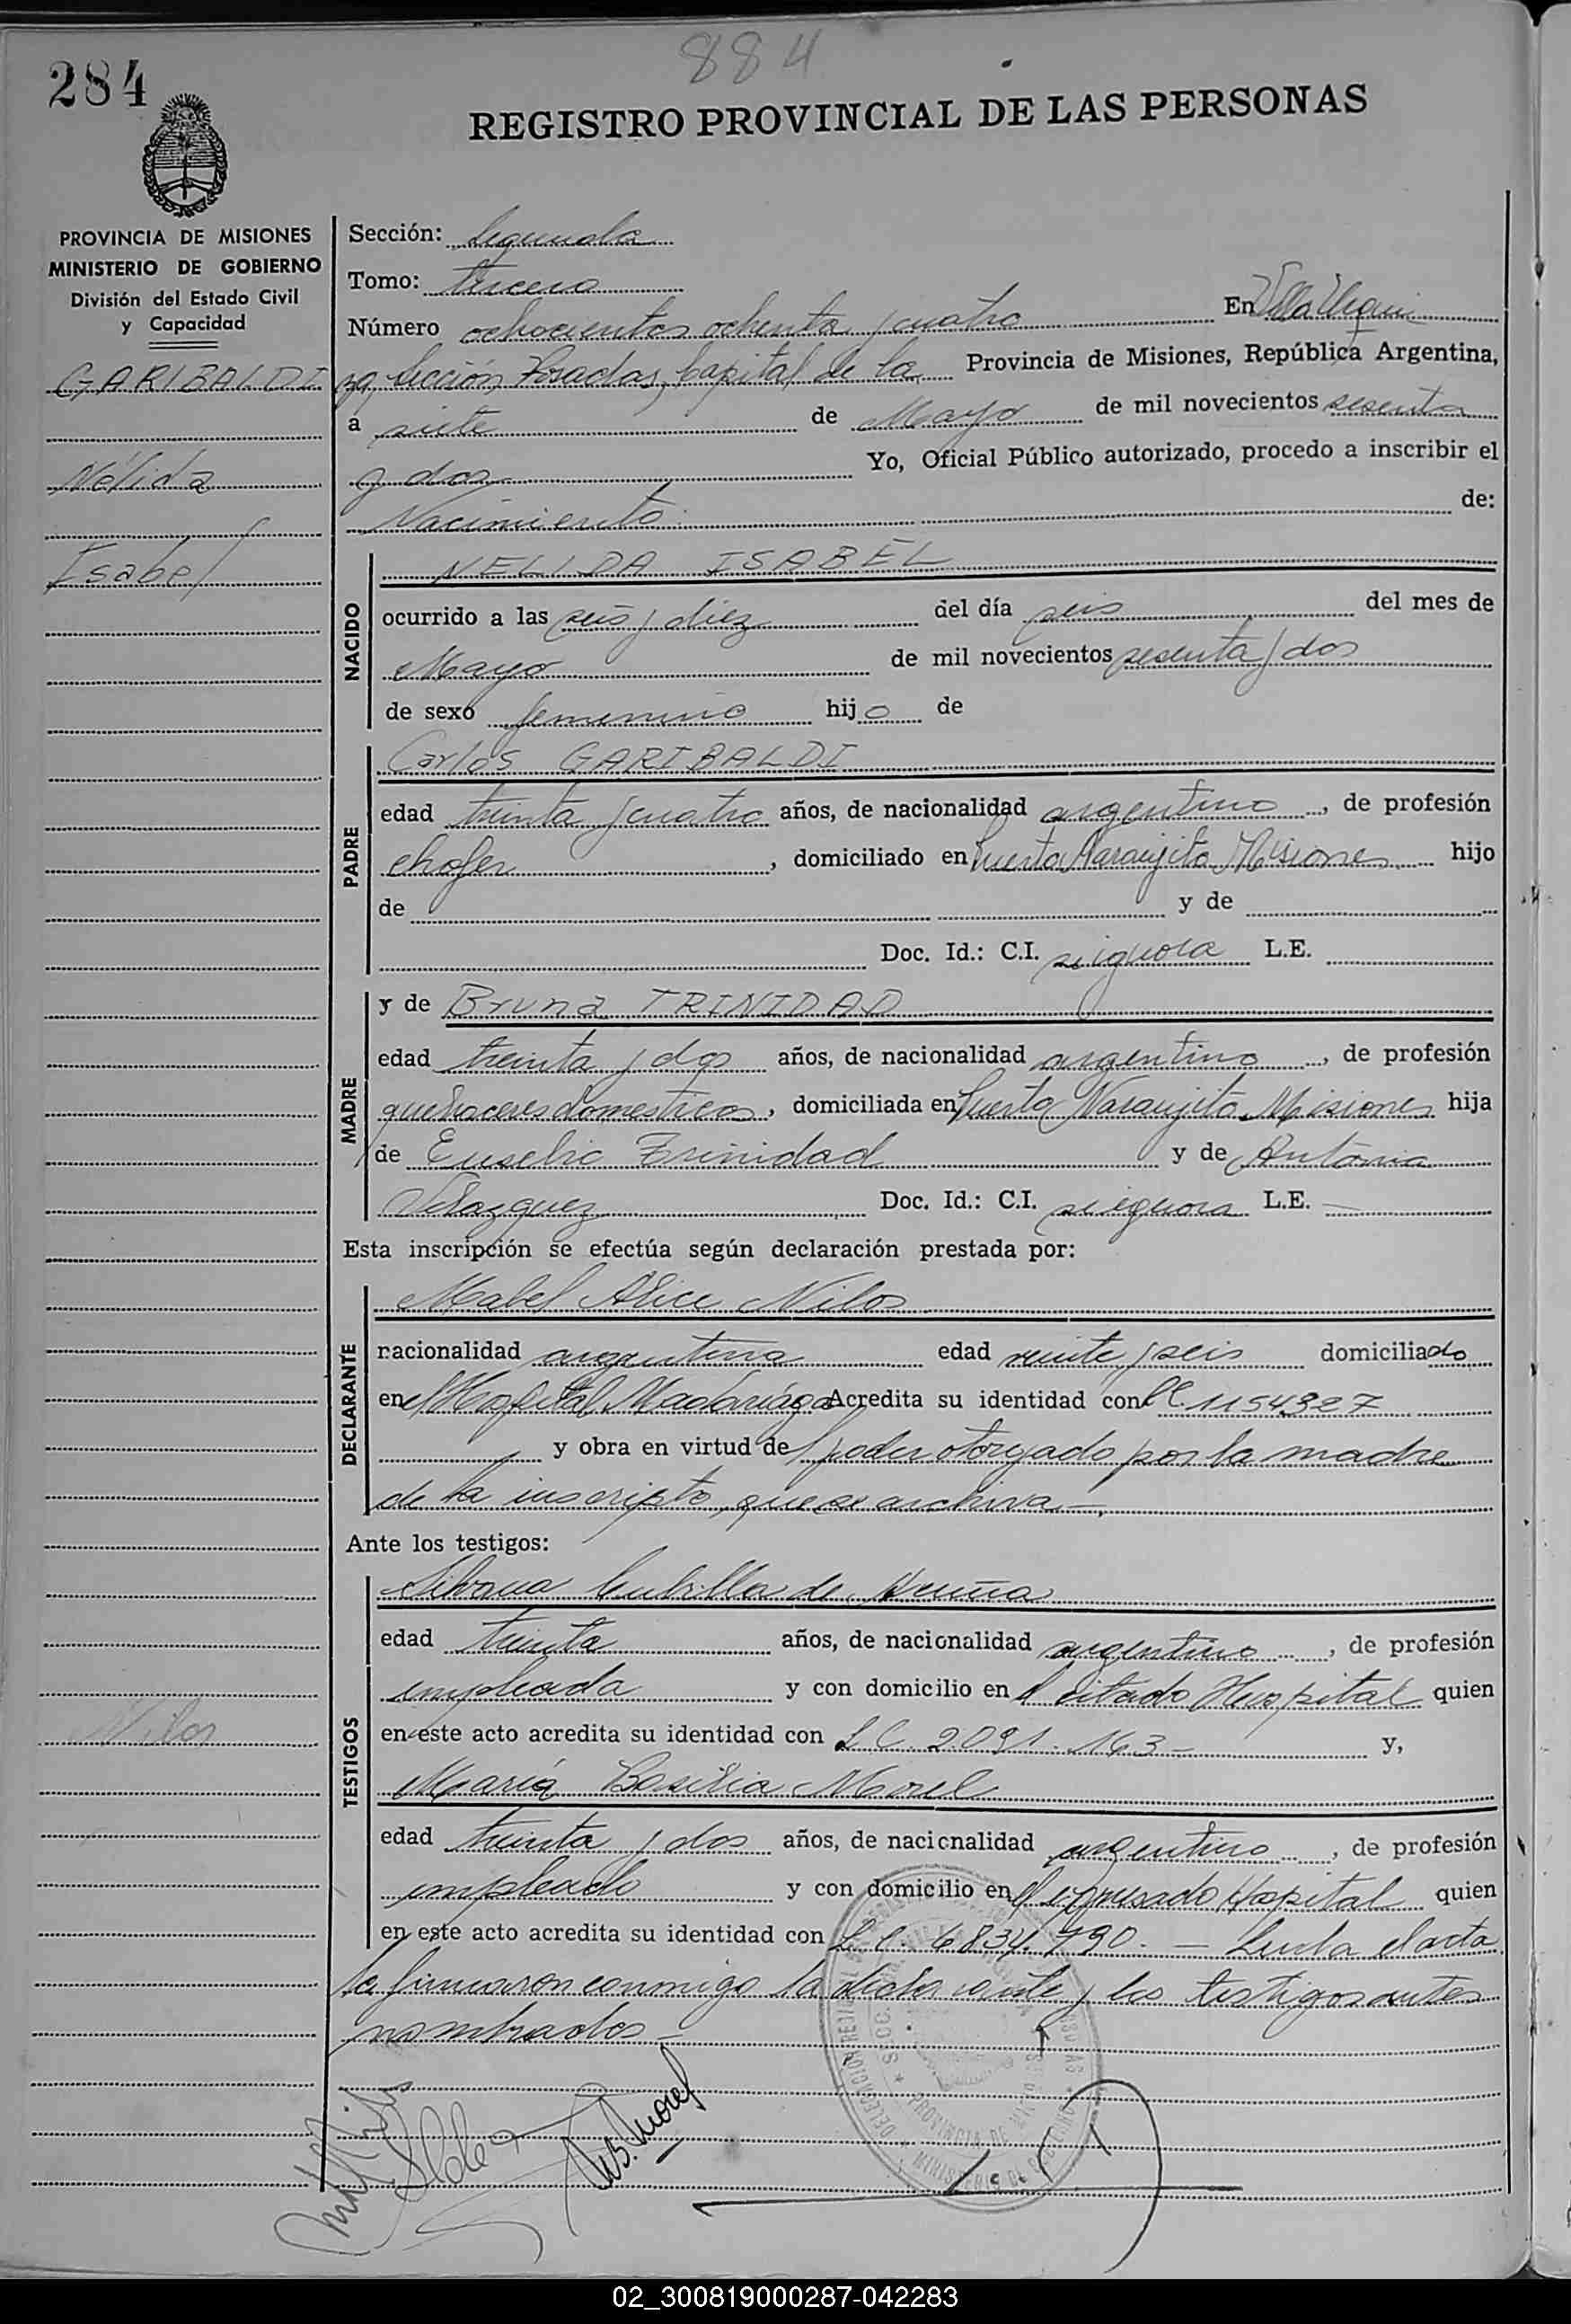 884
284
REGISTRO PROVINCIAL DE LAS PERSONAS
PROVINCIA DE MISIONES
MINISTERIO DE GOBIERNO
División del Estado Civil
y Capacidad
GARIBALDI
Nélida
Isabel
Nilos
Sección: Segunda
Tomo: tercero
Número ochocientos ochenta y cuatro En Villa Urqui
za, Sección, Posadas, Capital de la Provincia de Misiones, República Argentina,
a siete de Mayo de mil novecientos sesenta
y dos Yo, Oficial Público autorizado, procedo a inscribir el
Nacimiento de:
NACIDO
NELIDA ISABEL
ocurrido a las seis y diez del día seis del mes de
Mayo de mil novecientos sesenta y dos
de sexo femenino hijo de
PADRE
Carlos GARIBALDI
edad treinta y cuatro años, de nacionalidad argentino, de profesión
chofer, domiciliado en Puerto Naranjito Misiones hijo
de y de
Doc. Id.: C.I. se ignora L.E.
MADRE
y de Bruna TRINIDAD
edad treinta y dos años, de nacionalidad argentino, de profesión
quehaceres domesticos, domiciliada en Puerto Naranjito Misiones hija
de Eusebio Trinidad y de Antonia
Velazquez Doc. Id.: C.I. se ignora L.E. —
Esta inscripción se efectúa según declaración prestada por:
DECLARANTE
Mabel Alice Nilos
nacionalidad argentina edad veinte y seis domiciliado
en el Hospital Madariaga Acredita su identidad con L.C. 1154327
y obra en virtud del poder otorgado por la madre
de la inscripto, que se archiva.—
Ante los testigos:
TESTIGOS
Silvana Cubilla de
edad treinta años, de nacionalidad argentino, de profesión
empleada y con domicilio en el citado Hospital quien
en este acto acredita su identidad con L.C. 2.091.163 — y,
María Basilia Morel
edad treinta y dos años, de nacionalidad argentino, de profesión
empleado y con domicilio en el expresado Hospital quien
en este acto acredita su identidad con L.C. 6834.790. — Leída el acta
la firmaron conmigo la declarante y los testigos antes
nombrados —
M.B. Morel
PROVINCIA DE
02_300819000287-042283